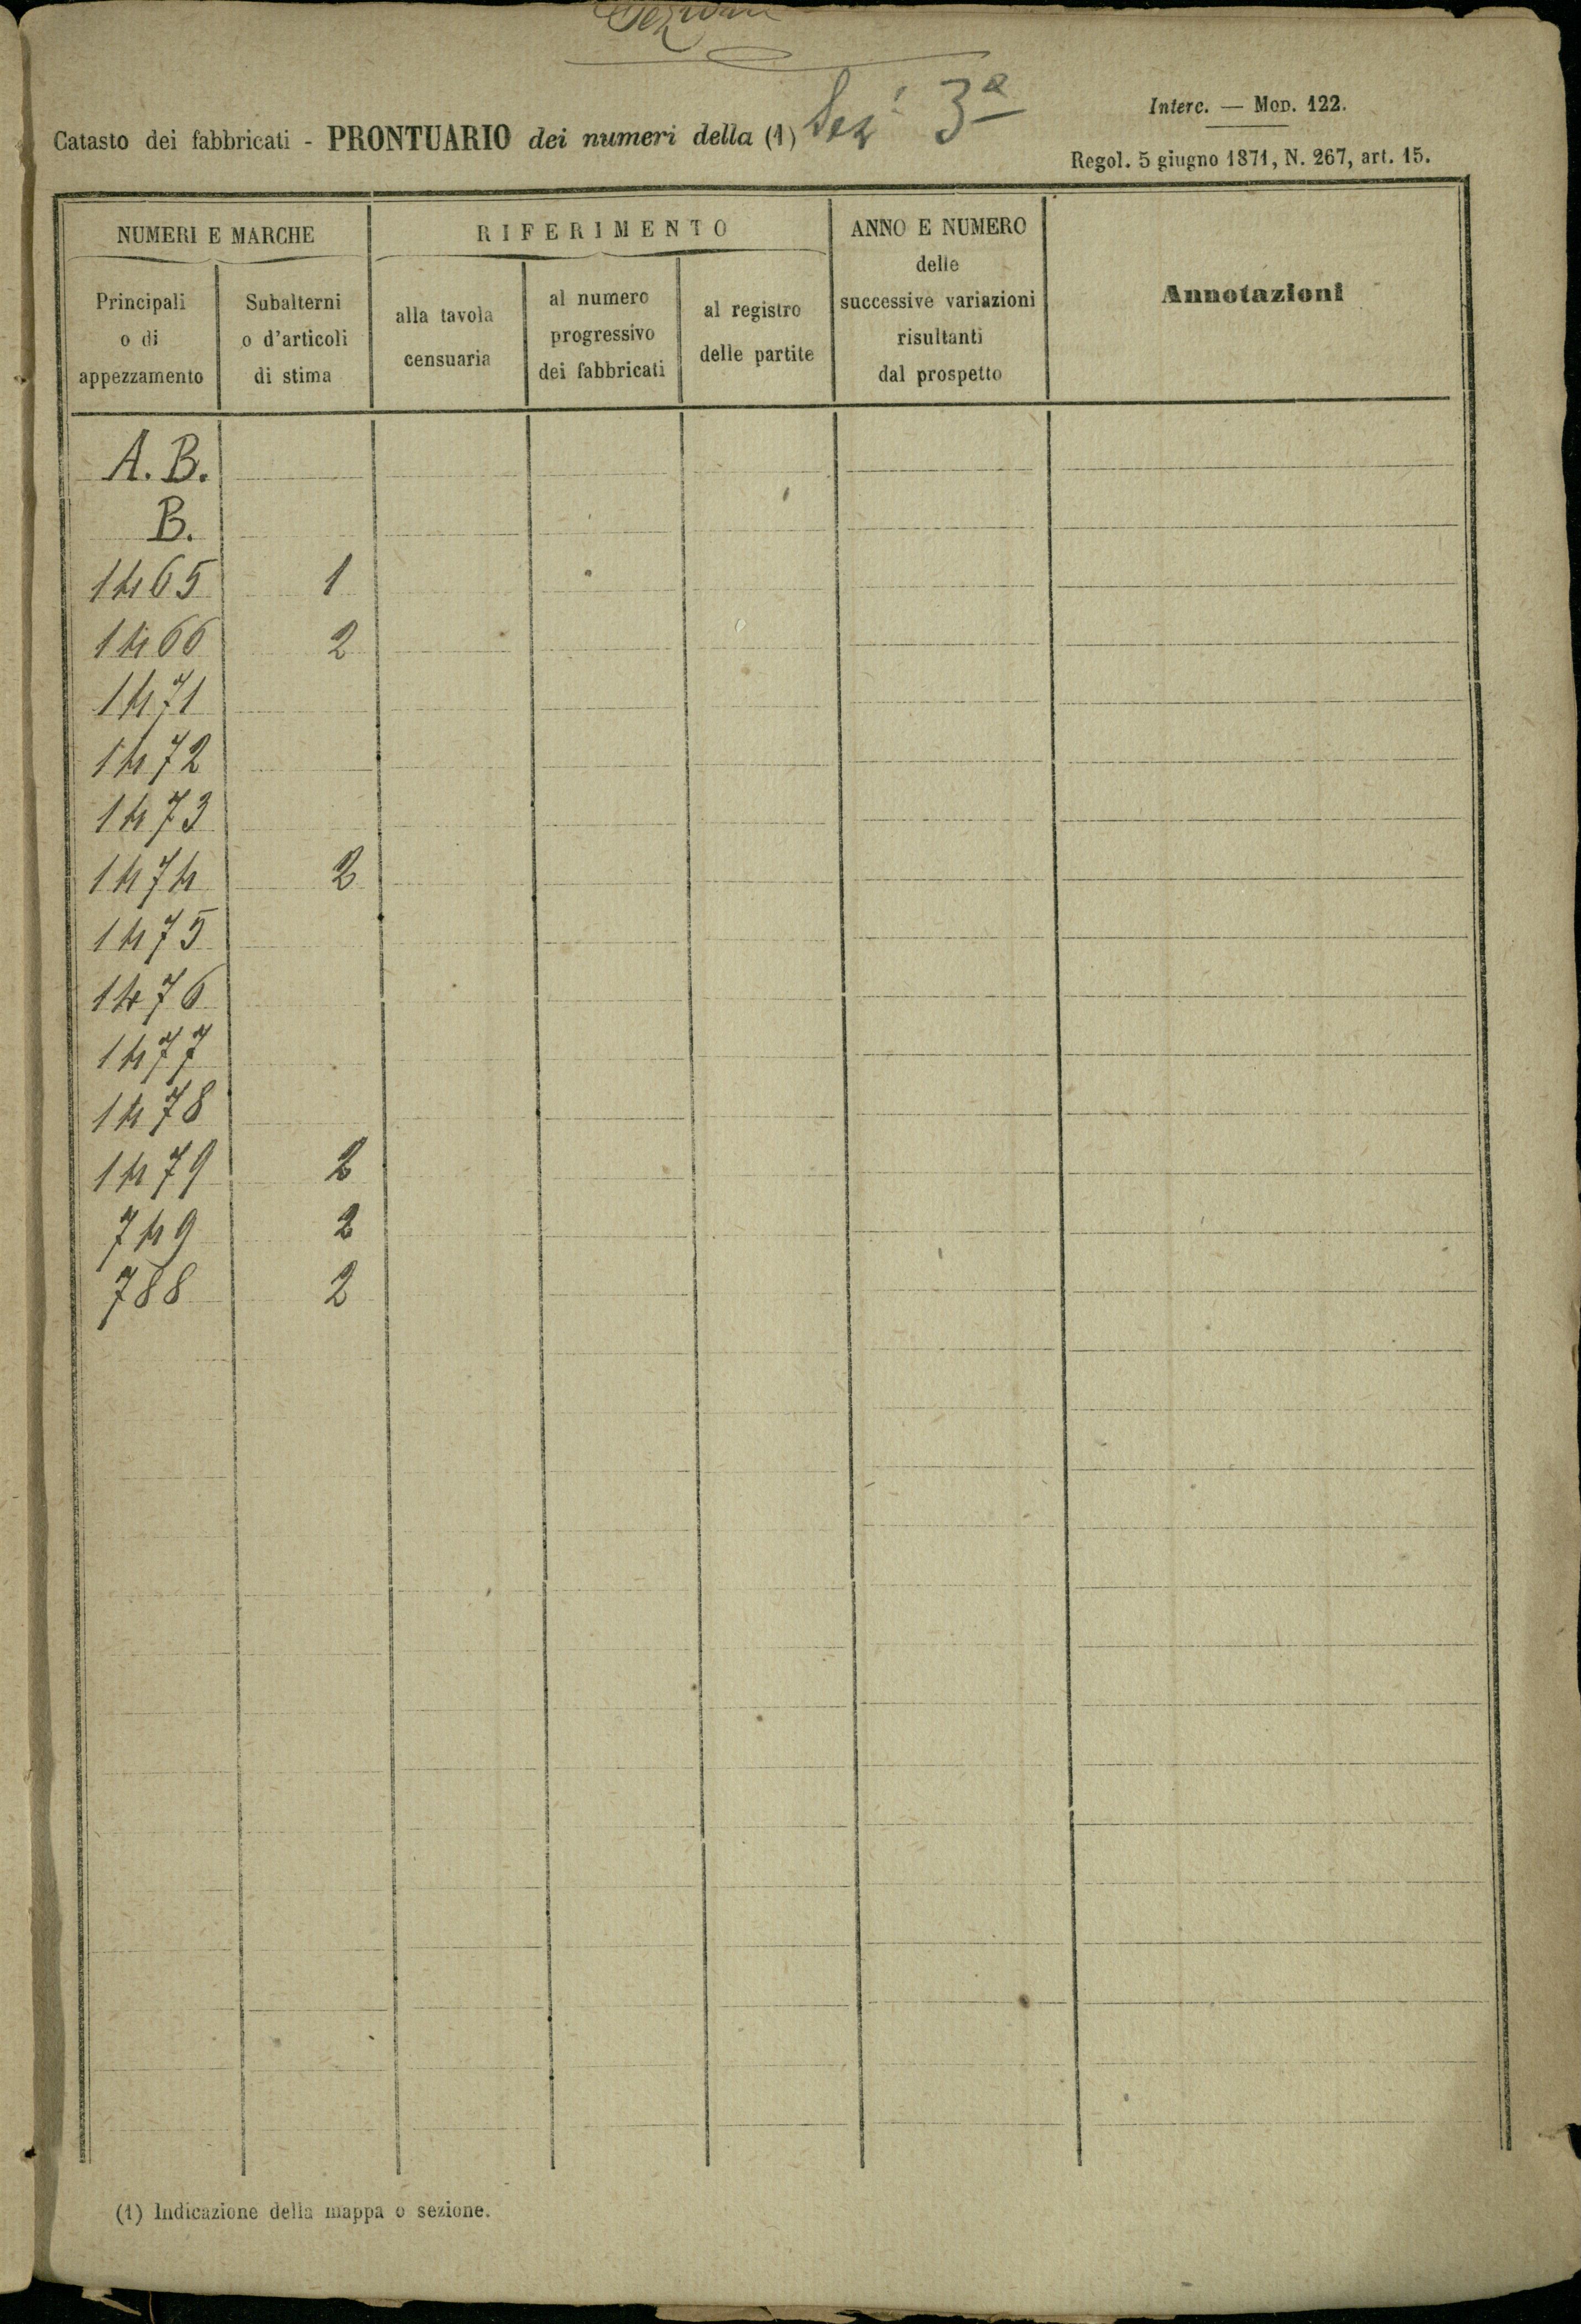 Interc. — Mod. 122.
Catasto dei fabbricati - PRONTUARIO dei numeri della (1) Sez. 3ª
Regol. 5 giugno 1871, N. 267, art. 15.
NUMERI E MARCHE
Principali
o di
appezzamento
Subalterni
o d'articoli
di stima
RIFERIMENTO
alla tavola
censuaria
al numero
progressivo
dei fabbricati
al registro
delle partite
ANNO E NUMERO
delle
successive variazioni
risultanti
dal prospetto
Annotazioni
A. B.
B.
1465 1
1466 2
1471
1472
1473
1474 2
1475
1476
1477
1478
1479 2
749 2
788 2
(1) Indicazione della mappa o sezione.